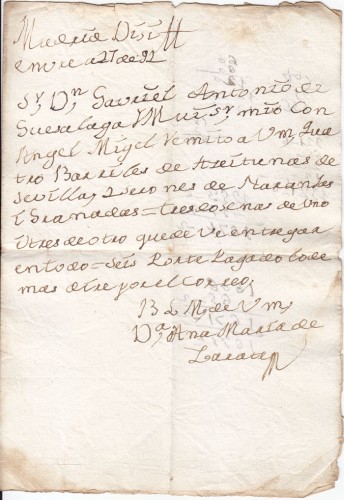 Madrid Dizi
embre a 27 de 92
Sr. Dn. Gavriel Antonio de
Gueralaga Y Mui Sr. mio Con
Angel Migel Remito a Vm, Qua
tro Barriles de Azeitunas de
Sevilla, 2 serones de Naranjas
i Granadas = tres dosenas de Uno
i tres de otro que deve entregar
en todo = Seis Porte Pagado lo de
mas dire por el Correo,
B L M, de Vm,
Da, Ana Maria de
Zarate